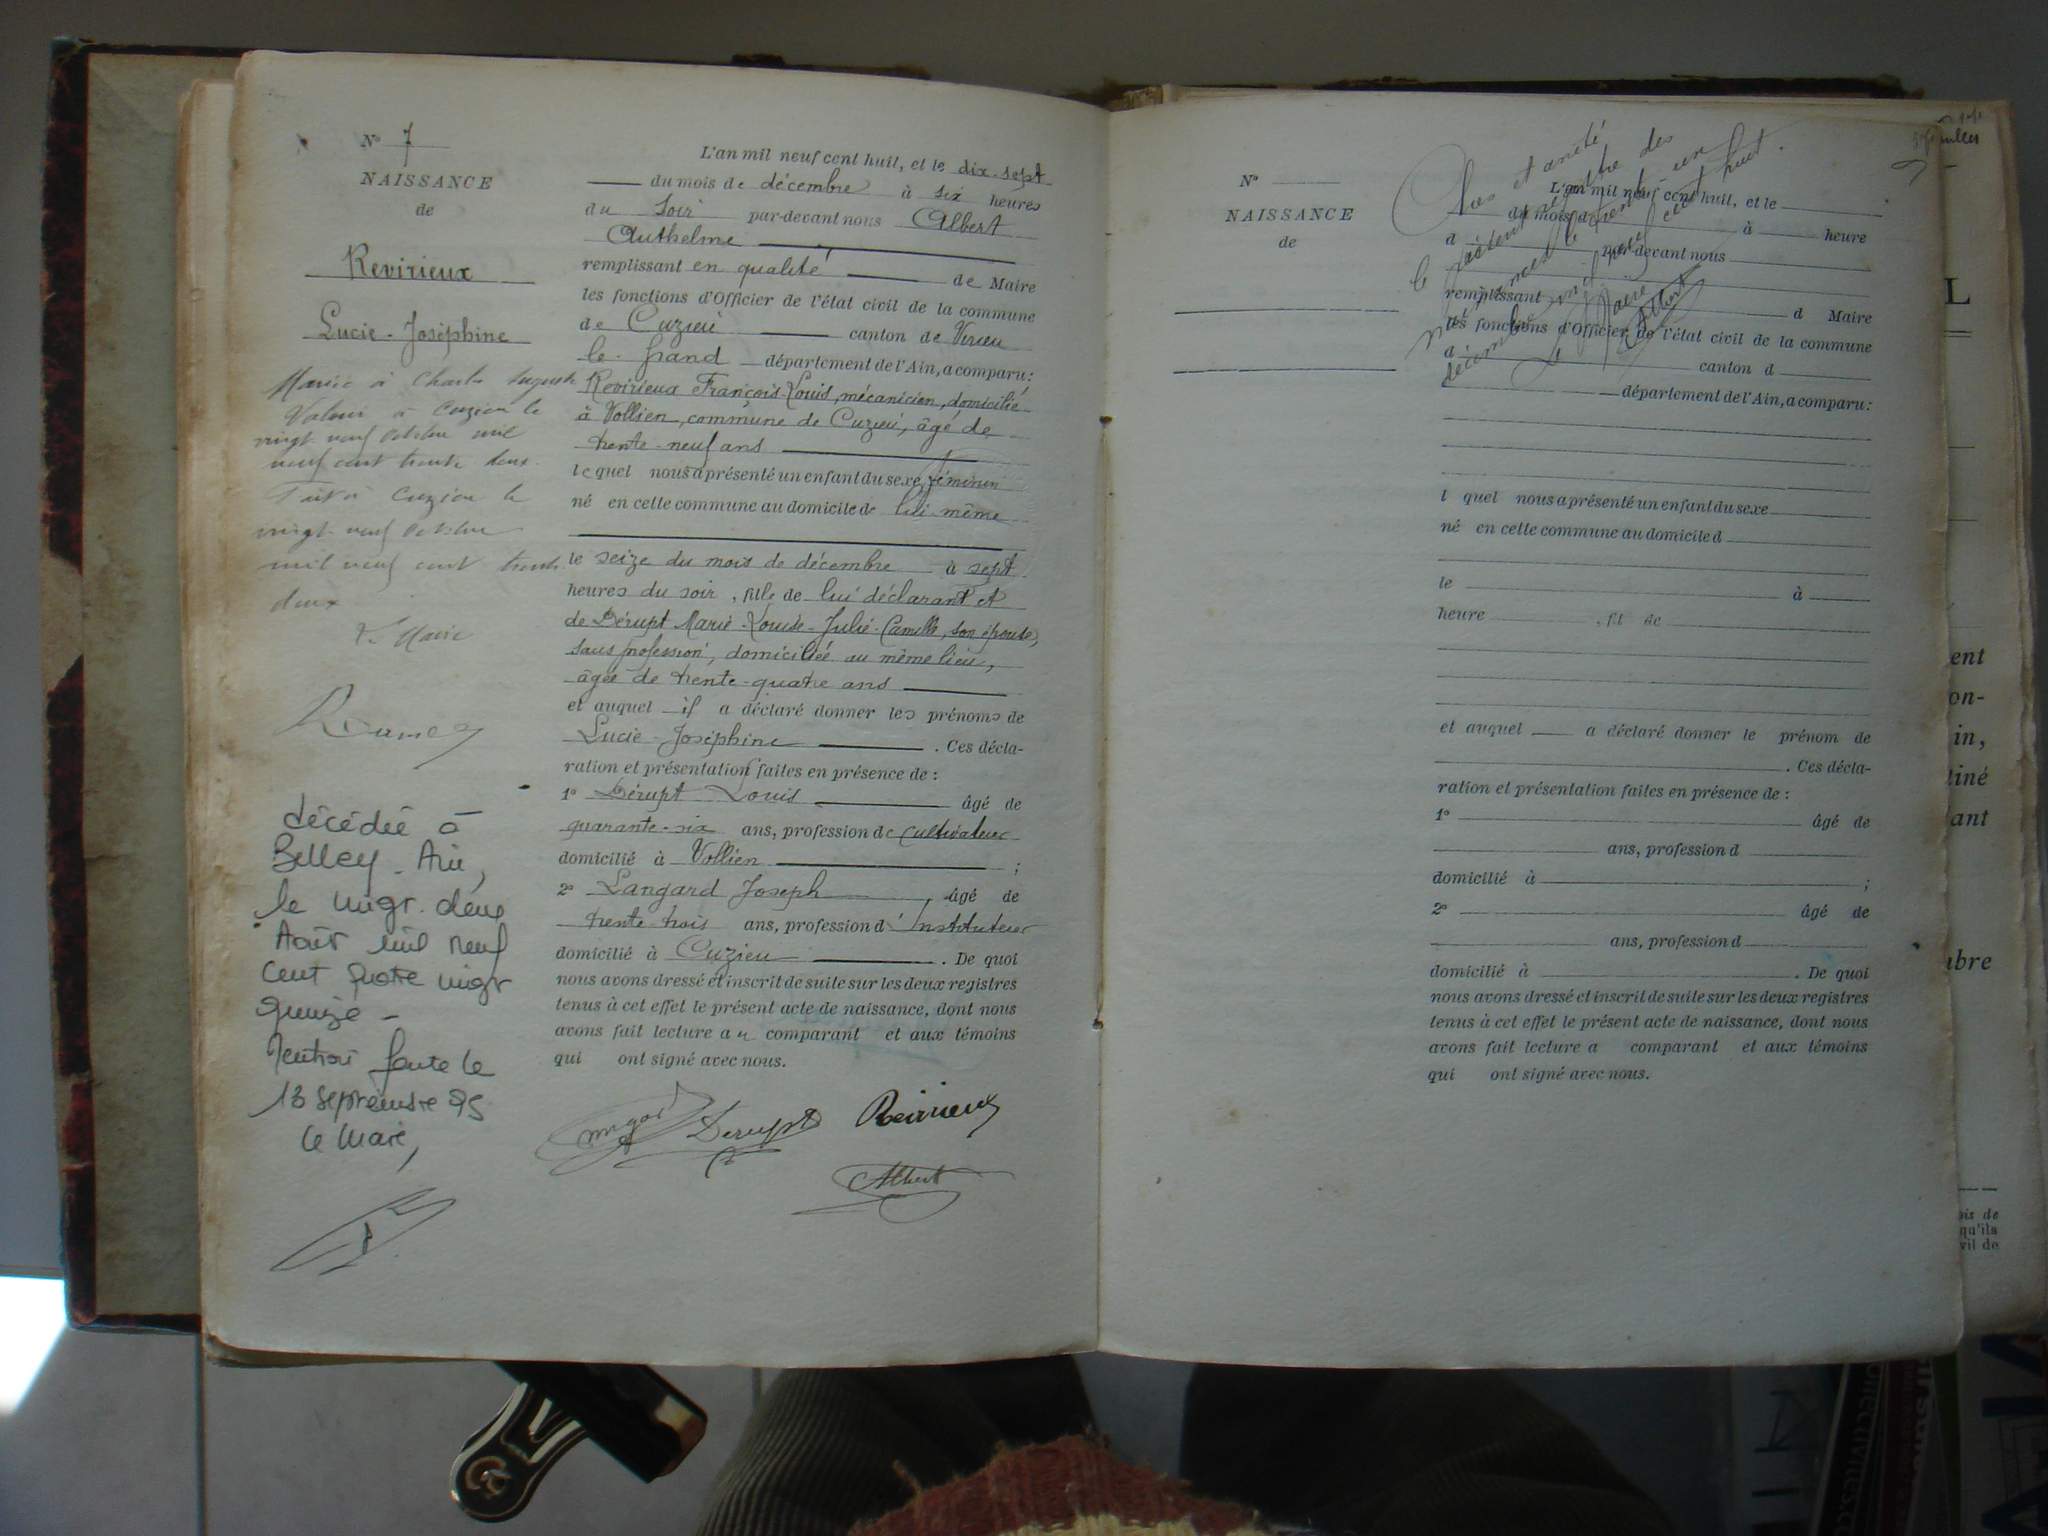 N° 7
NAISSANCE
de
Revirieux
Lucie-Joséphine
Mariée à Charles Auguste
à Cuzieu le
vingt neuf octobre mil
neuf cent trente deux.
Fait à Cuzieu le
vingt neuf octobre
mil neuf cent trente
deux
Le Maire
décédée à
Belley - Ain,
le vingt-deux
Août mil neuf
cent quatre vingt
quinze -
Mention faite le
13 septembre 95
le Maire,
L'an mil neuf cent huit, et le dix-sept
du mois de décembre à six heures
du soir par-devant nous Albert
Anthelme
remplissant en qualité de Maire
les fonctions d'Officier de l'état civil de la commune
de Cuzieu canton de Virieu
le-Grand département de l'Ain, a comparu :
Revirieux François-Louis, mécanicien, domicilié
à Vollien, commune de Cuzieu, âgé de
trente-neuf ans
lequel nous a présenté un enfant du sexe féminin
né en cette commune au domicile de lui-même
le seize du mois de décembre à sept
heures du soir, fille de lui déclarant et
de Dérupt Marie-Louise-Julie-Camille, son épouse,
sans profession, domiciliée au même lieu,
âgée de trente-quatre ans
et auquel il a déclaré donner les prénoms de
Lucie-Joséphine . Ces décla-
ration et présentation faites en présence de :
1° Dérupt Louis âgé de
quarante-six ans, profession de cultivateur
domicilié à Vollien ;
2° Langard Joseph, âgé de
trente-trois ans, profession d'Instituteur
domicilié à Cuzieu . De quoi
nous avons dressé et inscrit de suite sur les deux registres
tenus à cet effet le présent acte de naissance, dont nous
avons fait lecture au comparant et aux témoins
qui ont signé avec nous.
Derupt Revirieux
Albert
N°
NAISSANCE
de
Clos et arrêté
le présent registre des
naissances le trente un
décembre mil neuf cent huit.
Le Maire
Albert
L'an mil neuf cent huit, et le
du mois d à heure
d par-devant nous
remplissant d Maire
les fonctions d'Officier de l'état civil de la commune
d canton d
département de l'Ain, a comparu :
l quel nous a présenté un enfant du sexe
né en cette commune au domicile d
le à
heure , fil de
et auquel a déclaré donner le prénom de
. Ces décla-
ration et présentation faites en présence de :
1° âgé de
ans, profession d
domicilié à ;
2° âgé de
ans, profession d
domicilié à . De quoi
nous avons dressé et inscrit de suite sur les deux registres
tenus à cet effet le présent acte de naissance, dont nous
avons fait lecture a comparant et aux témoins
qui ont signé avec nous.
L
ent
on-
in,
tiné
ant
mbre
ois de
qu'ils
vil de